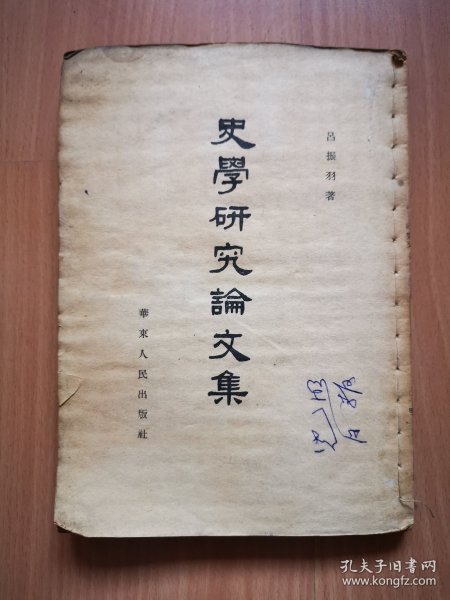 呂振羽著
史學研究論文集
華東人民出版社
孔夫子旧书网
www.kongfz.com